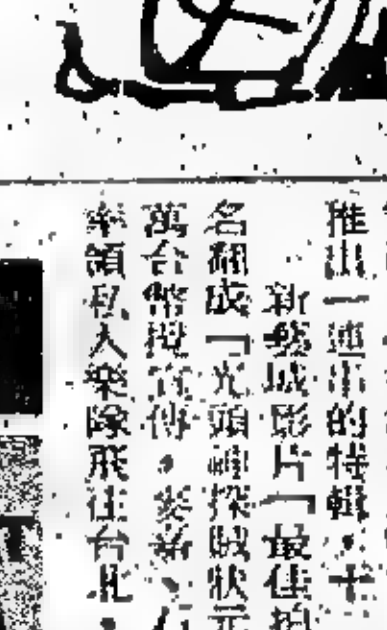 推出一連串的特輯，十
新藝城影片「最佳拍
名翻成「光頭神探賊狀元
萬台幣搜宣傳，麥嘉、
率領私人樂隊飛往台北，